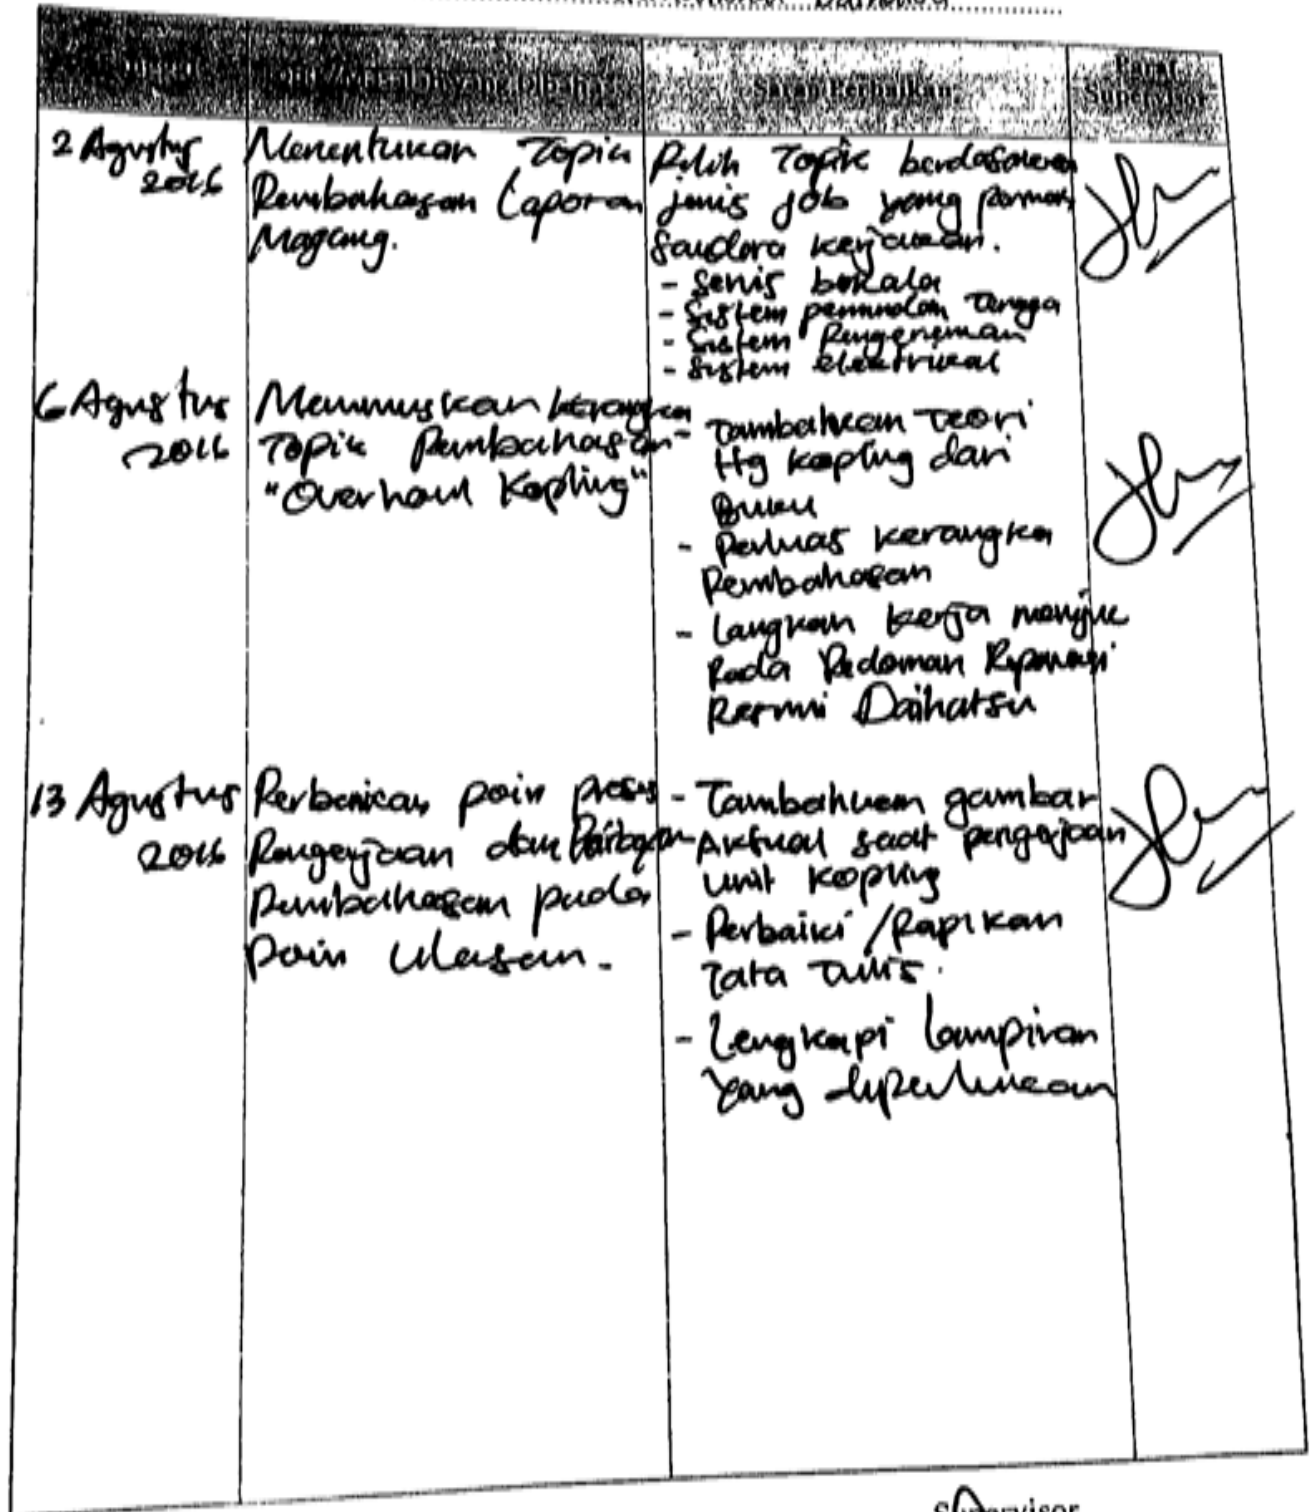 Saran Perbaikan
Paraf
Supervisor
2 Agustus
2016
Menentukan Topik
Pembahasan Laporan
Magang.
Pilih Topik berdasarkan
jenis job yang pernah
Saudara kerjakan.
- Servis berkala
- Sistem pemindah Tenaga
- Sistem Pengereman
- Sistem elektrikal
6 Agustus
2016
Merumuskan kerangka
Topik Pembahasan
"Overhaul Kopling"
- Tambahkan Teori
Ttg kopling dari
Buku
- Perluas kerangka
Pembahasan
- Langkah kerja merujuk
Pada Pedoman Reparasi
Resmi Daihatsu
13 Agustus
2016
Perbaikan poin proses
Pengerjaan dan
Pembahasan pada
Poin Ulasan.
- Tambahkan gambar
Aktual saat pengerjaan
unit kopling
- Perbaiki / Rapikan
Tata Tulis.
- Lengkapi lampiran
yang diperlukan
Supervisor